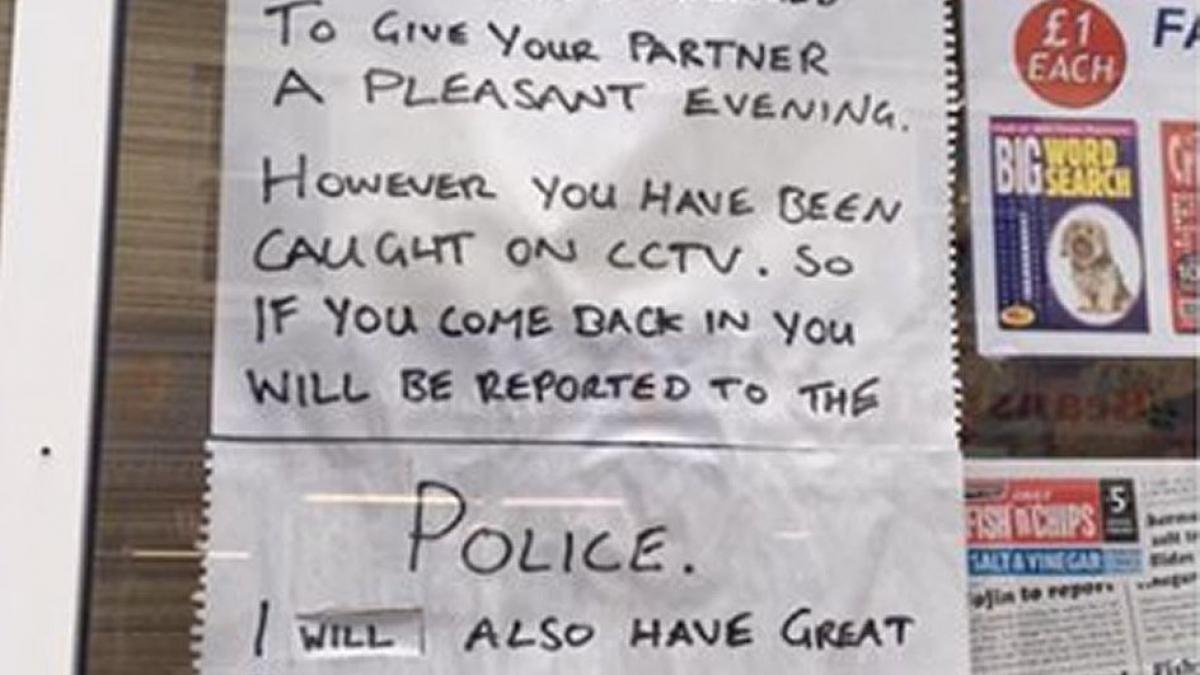 TO GIVE YOUR PARTNER
A PLEASANT EVENING.
HOWEVER YOU HAVE BEEN
CAUGHT ON CCTV. SO
IF YOU COME BACK IN YOU
WILL BE REPORTED TO THE
POLICE.
I WILL ALSO HAVE GREAT
£1
EACH
FA
BIG WORD
SEARCH
FISH n CHIPS
5
SALT & VINEGAR